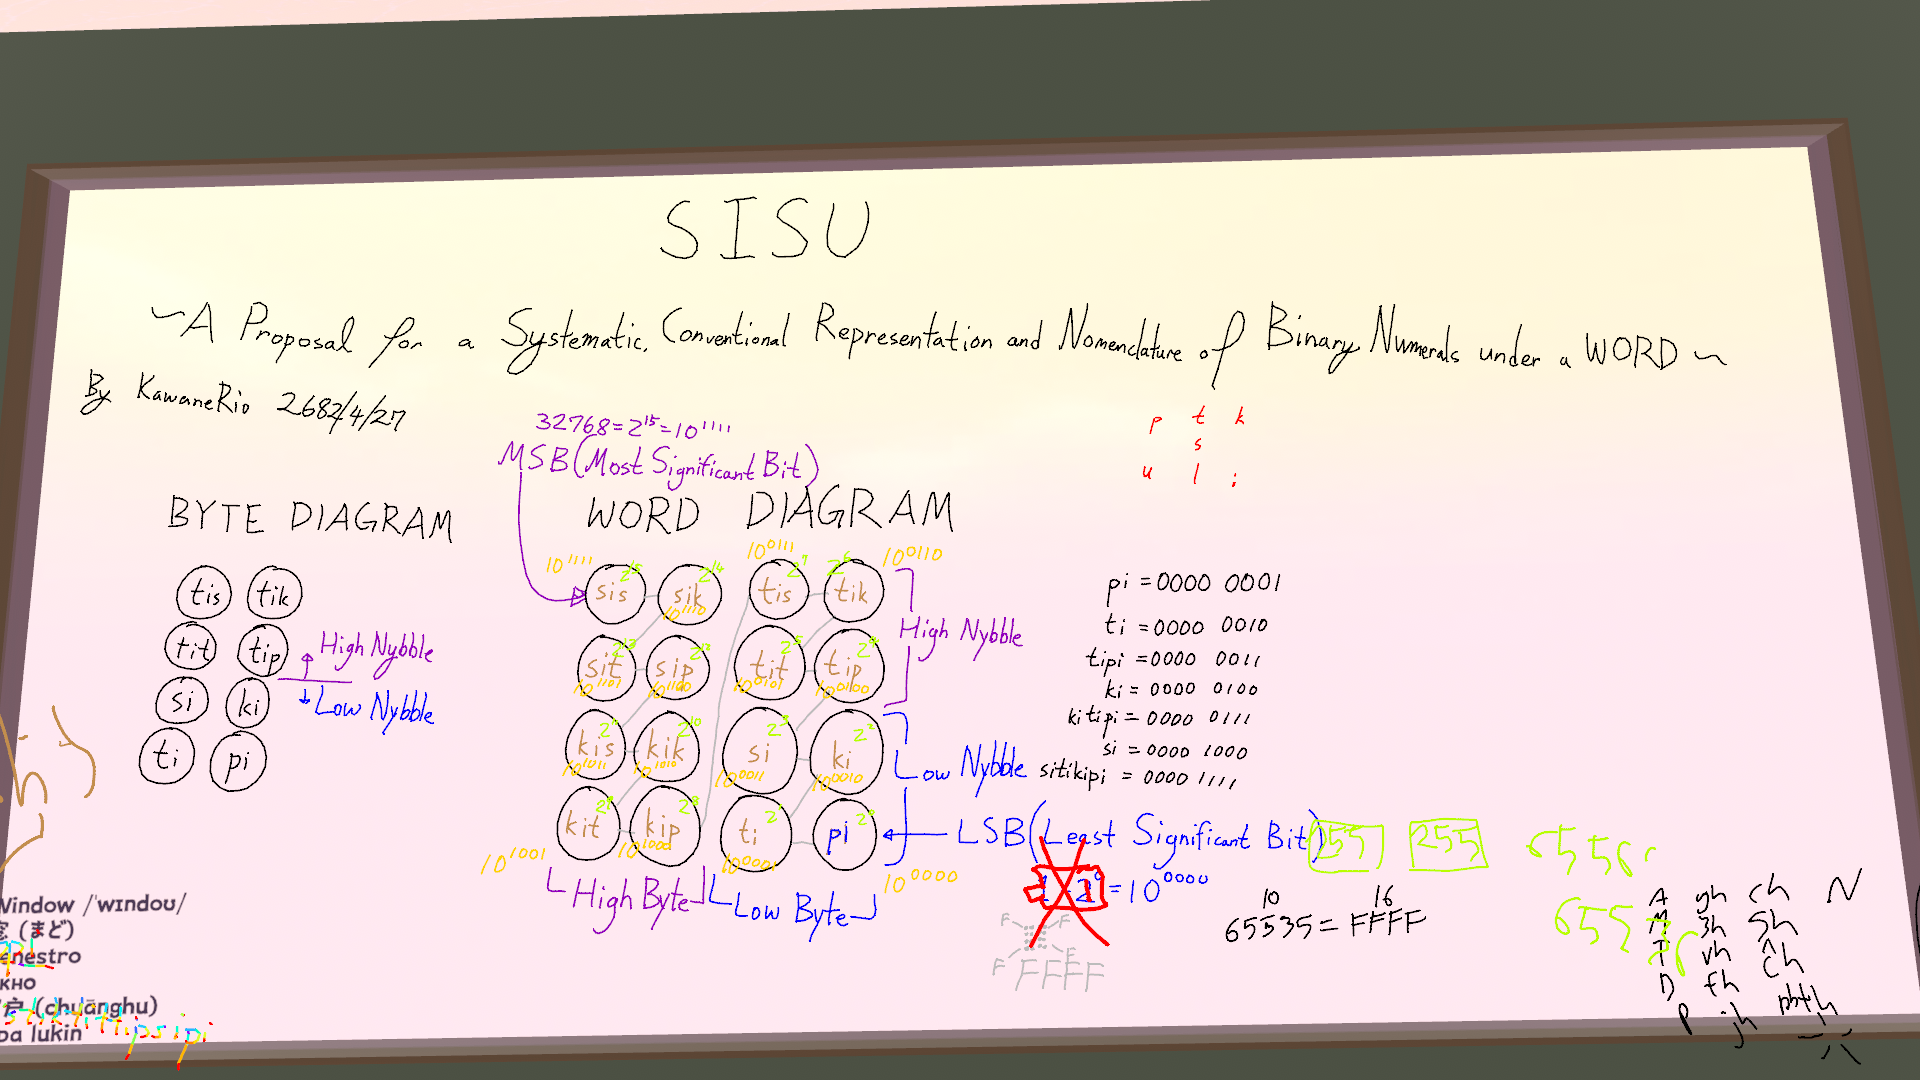 SISU
~A Proposal for a Systematic, Conventional Representation and Nomenclature of Binary Numerals under a WORD~
By KawaneRio 2682/4/27
32768=2^15=10^1111
MSB(Most Significant Bit)
p t k
s
u l i
BYTE DIAGRAM
tis tik
tit tip
si ki
ti pi
High Nybble
Low Nybble
WORD DIAGRAM
10^1111 10^0111 10^0110
sis 2^15 sik 2^14 10^1110 tis 2^7 tik 2^6
sit 2^13 10^1101 sip 2^12 10^1100 tit 2^5 10^0101 tip 2^4 10^0100
kis 2^11 10^1011 kik 2^10 10^1010 si 2^3 10^0011 ki 2^2 10^0010
kit 2^9 kip 2^8 10^1000 ti 2^1 10^0001 pi 2^0
10^1001 10^0000
High Nybble
Low Nybble
High Byte Low Byte
LSB(Least Significant Bit)
=10^0000
pi = 0000 0001
ti = 0000 0010
tipi = 0000 0011
ki = 0000 0100
kitipi = 0000 0111
si = 0000 1000
sitikipi = 0000 1111
255 255
10 16
65535 = FFFF
F F
F F
FFFF
A gh ch N
M 3h Sh
T vh ĉh
D fh
P jh
Window /ˈwɪndoʊ/
窓 (まど)
fenestro
окно
(chuānghu)
lukin